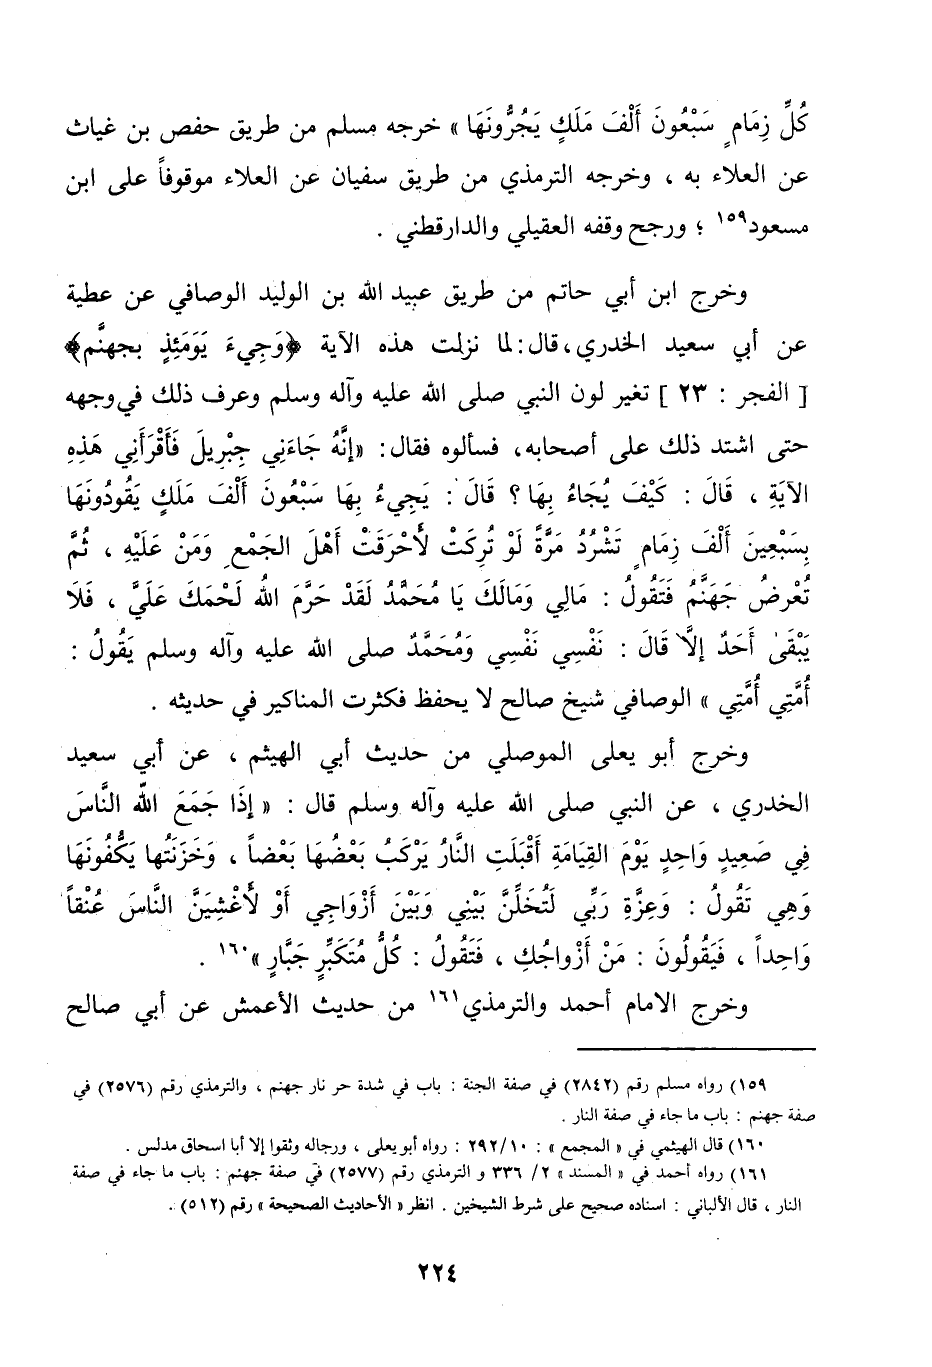 كُلِّ زِمَامٍ سَبْعُونَ أَلْفَ مَلَكٍ يَجُرُّونَهَا » خرجه مسلم من طريق حفص بن غياث
عن العلاء به ، وخرجه الترمذي من طريق سفيان عن العلاء موقوفاً على ابن
مسعود١٥٩ ؛ ورجح وقفه العقيلي والدارقطني .
وخرج ابن أبي حاتم من طريق عبيد الله بن الوليد الوصافي عن عطية
عن أبي سعيد الخدري، قال: لما نزلت هذه الآية ﴿وَجِيءَ يَوَمَئِذٍ بجهنَّم﴾
[ الفجر : ٢٣ ] تغير لون النبي صلى الله عليه وآله وسلم وعرف ذلك في وجهه
حتى اشتد ذلك على أصحابه، فسألوه فقال: «إنَّهُ جَاءَنِي جِبْرِيلَ فَأَقْرَأَنِي هَذِهِ
الآيَةِ ، قَالَ : كَيْفَ يُجَاءُ بِهَا ؟ قَالَ : يَجِيءُ بِهَا سَبْعُونَ أَلْفَ مَلَكٍ يَقُودُونَهَا
بِسَبْعِينَ أَلْفَ زِمَامٍ تَشْرُدُ مَرَّةً لَوْ تُرِكَتْ لأَحْرَقَتْ أَهْلَ الجَمْعِ وَمَنْ عَلَيْهِ ، ثُمَّ
تُعْرضُ جَهَنَّمُ فَتَقُولُ : مَالِي وَمَالَكَ يَا مُحَمَّدُ لَقَدْ حَرَّمَ اللهُ لَحْمَكَ عَلَيَّ ، فَلَا
يَبْقَى أَحَدٌ إلاَّ قَالَ : نَفْسِي نَفْسِي وَمُحَمَّدٌ صلى الله عليه وآله وسلم يَقُولُ :
أُمَّتِي أُمَّتِي » الوصافي شيخ صالح لا يحفظ فكثرت المناكير في حديثه .
وخرج أبو يعلى الموصلي من حديث أبي الهيثم ، عن أبي سعيد
الخدري ، عن النبي صلى الله عليه وآله وسلم قال : « إذَا جَمَعَ اللَّهُ النَّاسَ
فِي صَعِيدٍ وَاحِدٍ يَوْمَ القِيَامَةِ أَقْبَلَتِ النَّارُ يَرْكَبُ بَعْضُهَا بَعْضاً ، وَخَزَنَتُها يَكُفُّونَهَا
وَهِي تَقُولُ : وَعِزَّةِ رَبِّي لَتُخَلِّنَّ بَيْنِي وَبَيْنَ أَزْوَاجِي أَوْ لأَغْشِيَنَّ النَّاسَ عُنْقاً
وَاحِداً ، فَيَقُولُونَ : مَنْ أَزْواجُكِ ، فَتَقُولُ : كُلُّ مُتَكَبِّرٍ جَبَّارٍ »١٦٠ .
وخرج الامام أحمد والترمذي١٦١ من حديث الأعمش عن أبي صالح
١٥٩) رواه مسلم رقم (٢٨٤٢) في صفة الجنة : باب في شدة حر نار جهنم ، والترمذي رقم (٢٥٧٦) في
صفة جهنم : باب ما جاء في صفة النار .
١٦٠) قال الهيثمي في « المجمع » : ٢٩٢/١٠ : رواه أبو يعلى ، ورجاله وثقوا إلا أبا اسحاق مدلس .
١٦١) رواه أحمد في « المسند » ٢/ ٣٣٦ و الترمذي رقم (٢٥٧٧) في صفة جهنم : باب ما جاء في صفة
النار ، قال الألباني : اسناده صحيح على شرط الشيخين . انظر « الأحاديث الصحيحة » رقم (٥١٢) .
٢٢٤